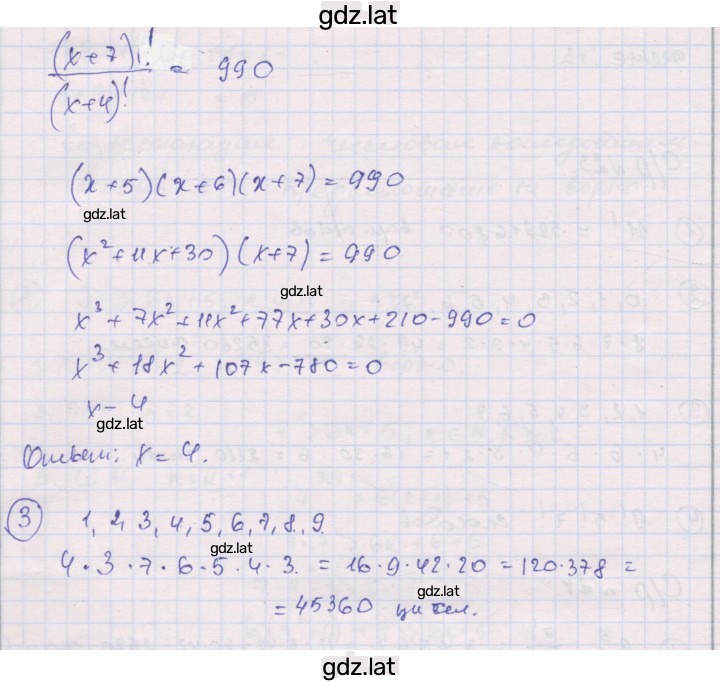 gdz.lat
(x+7)! / (x+4)! = 990
(x+5)(x+6)(x+7)=990
gdz.lat
(x²+11x+30)(x+7)=990
gdz.lat
x³+7x²+11x²+77x+30x+210-990=0
x³+18x²+107x-780=0
x-4
gdz.lat
Ответ: x=4.
3 1, 2, 3, 4, 5, 6, 7, 8, 9.
gdz.lat
4·3·7·6·5·4·3. = 16·9·42·20 = 120·378 =
gdz.lat
= 45360
gdz.lat